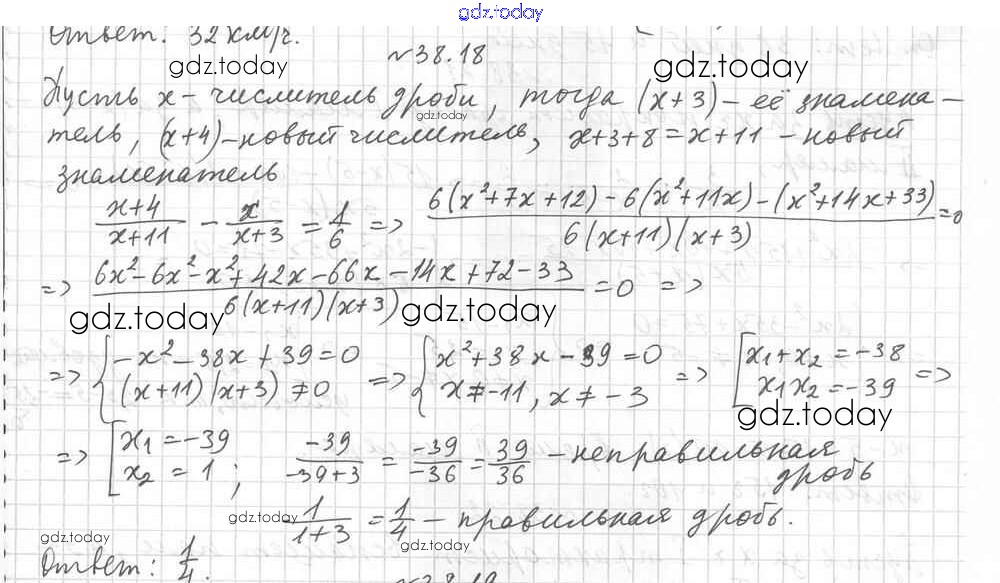 gdz.today
Ответ: 32 км/ч.
№38.18
gdz.today gdz.today
Пусть x - числитель дроби, тогда (x+3) - её знамена-
gdz.today
тель, (x+4) - новый числитель, x+3+8=x+11 - новый
знаменатель
(x+4)/(x+11) - x/(x+3) = 1/6 => (6(x²+7x+12)-6(x²+11x)-(x²+14x+33))/(6(x+11)(x+3)) =0
=> (6x²-6x²-x²+42x-66x-14x+72-33)/(6(x+11)(x+3)) =0 =>
gdz.today gdz.today
=> { -x²-38x+39=0 ; (x+11)(x+3)≠0 => { x²+38x-39=0 ; x≠-11, x≠-3 => [ x₁+x₂=-38 ; x₁x₂=-39 =>
gdz.today
=> [ x₁=-39 ; x₂=1 ; -39/(-39+3) = -39/-36 = 39/36 - неправильная
дробь
gdz.today 1/(1+3) = 1/4 - правильная дробь.
gdz.today gdz.today
Ответ: 1/4.
№38.19